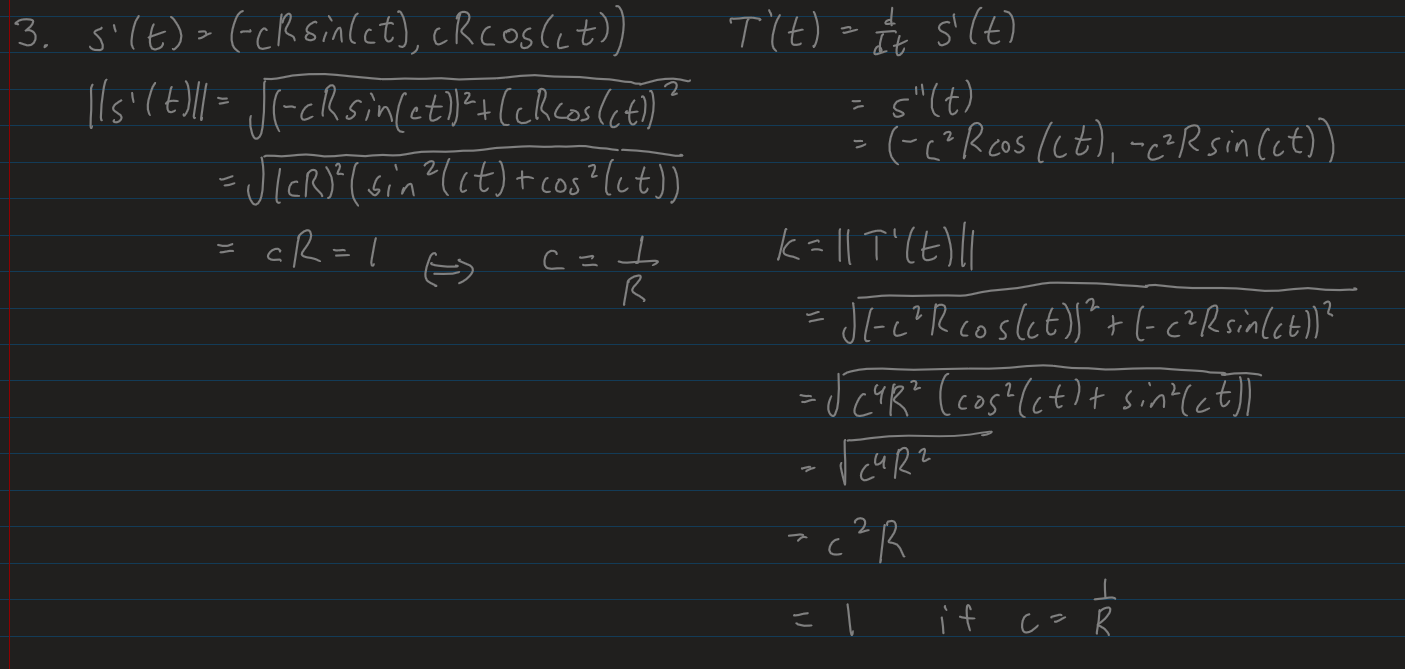 3. s'(t) = (-cRsin(ct), cRcos(ct))
||s'(t)|| = √((-cRsin(ct))²+(cRcos(ct))²)
= √((cR)²(sin²(ct)+cos²(ct)))
= cR = 1 ⟺ c = 1/R
T'(t) = d/dt s'(t)
= s''(t)
= (-c²Rcos(ct), -c²Rsin(ct))
k = ||T'(t)||
= √((-c²Rcos(ct))² + (-c²Rsin(ct))²)
= √(c⁴R² (cos²(ct) + sin²(ct)))
= √(c⁴R²)
= c²R
= 1 if c = 1/R